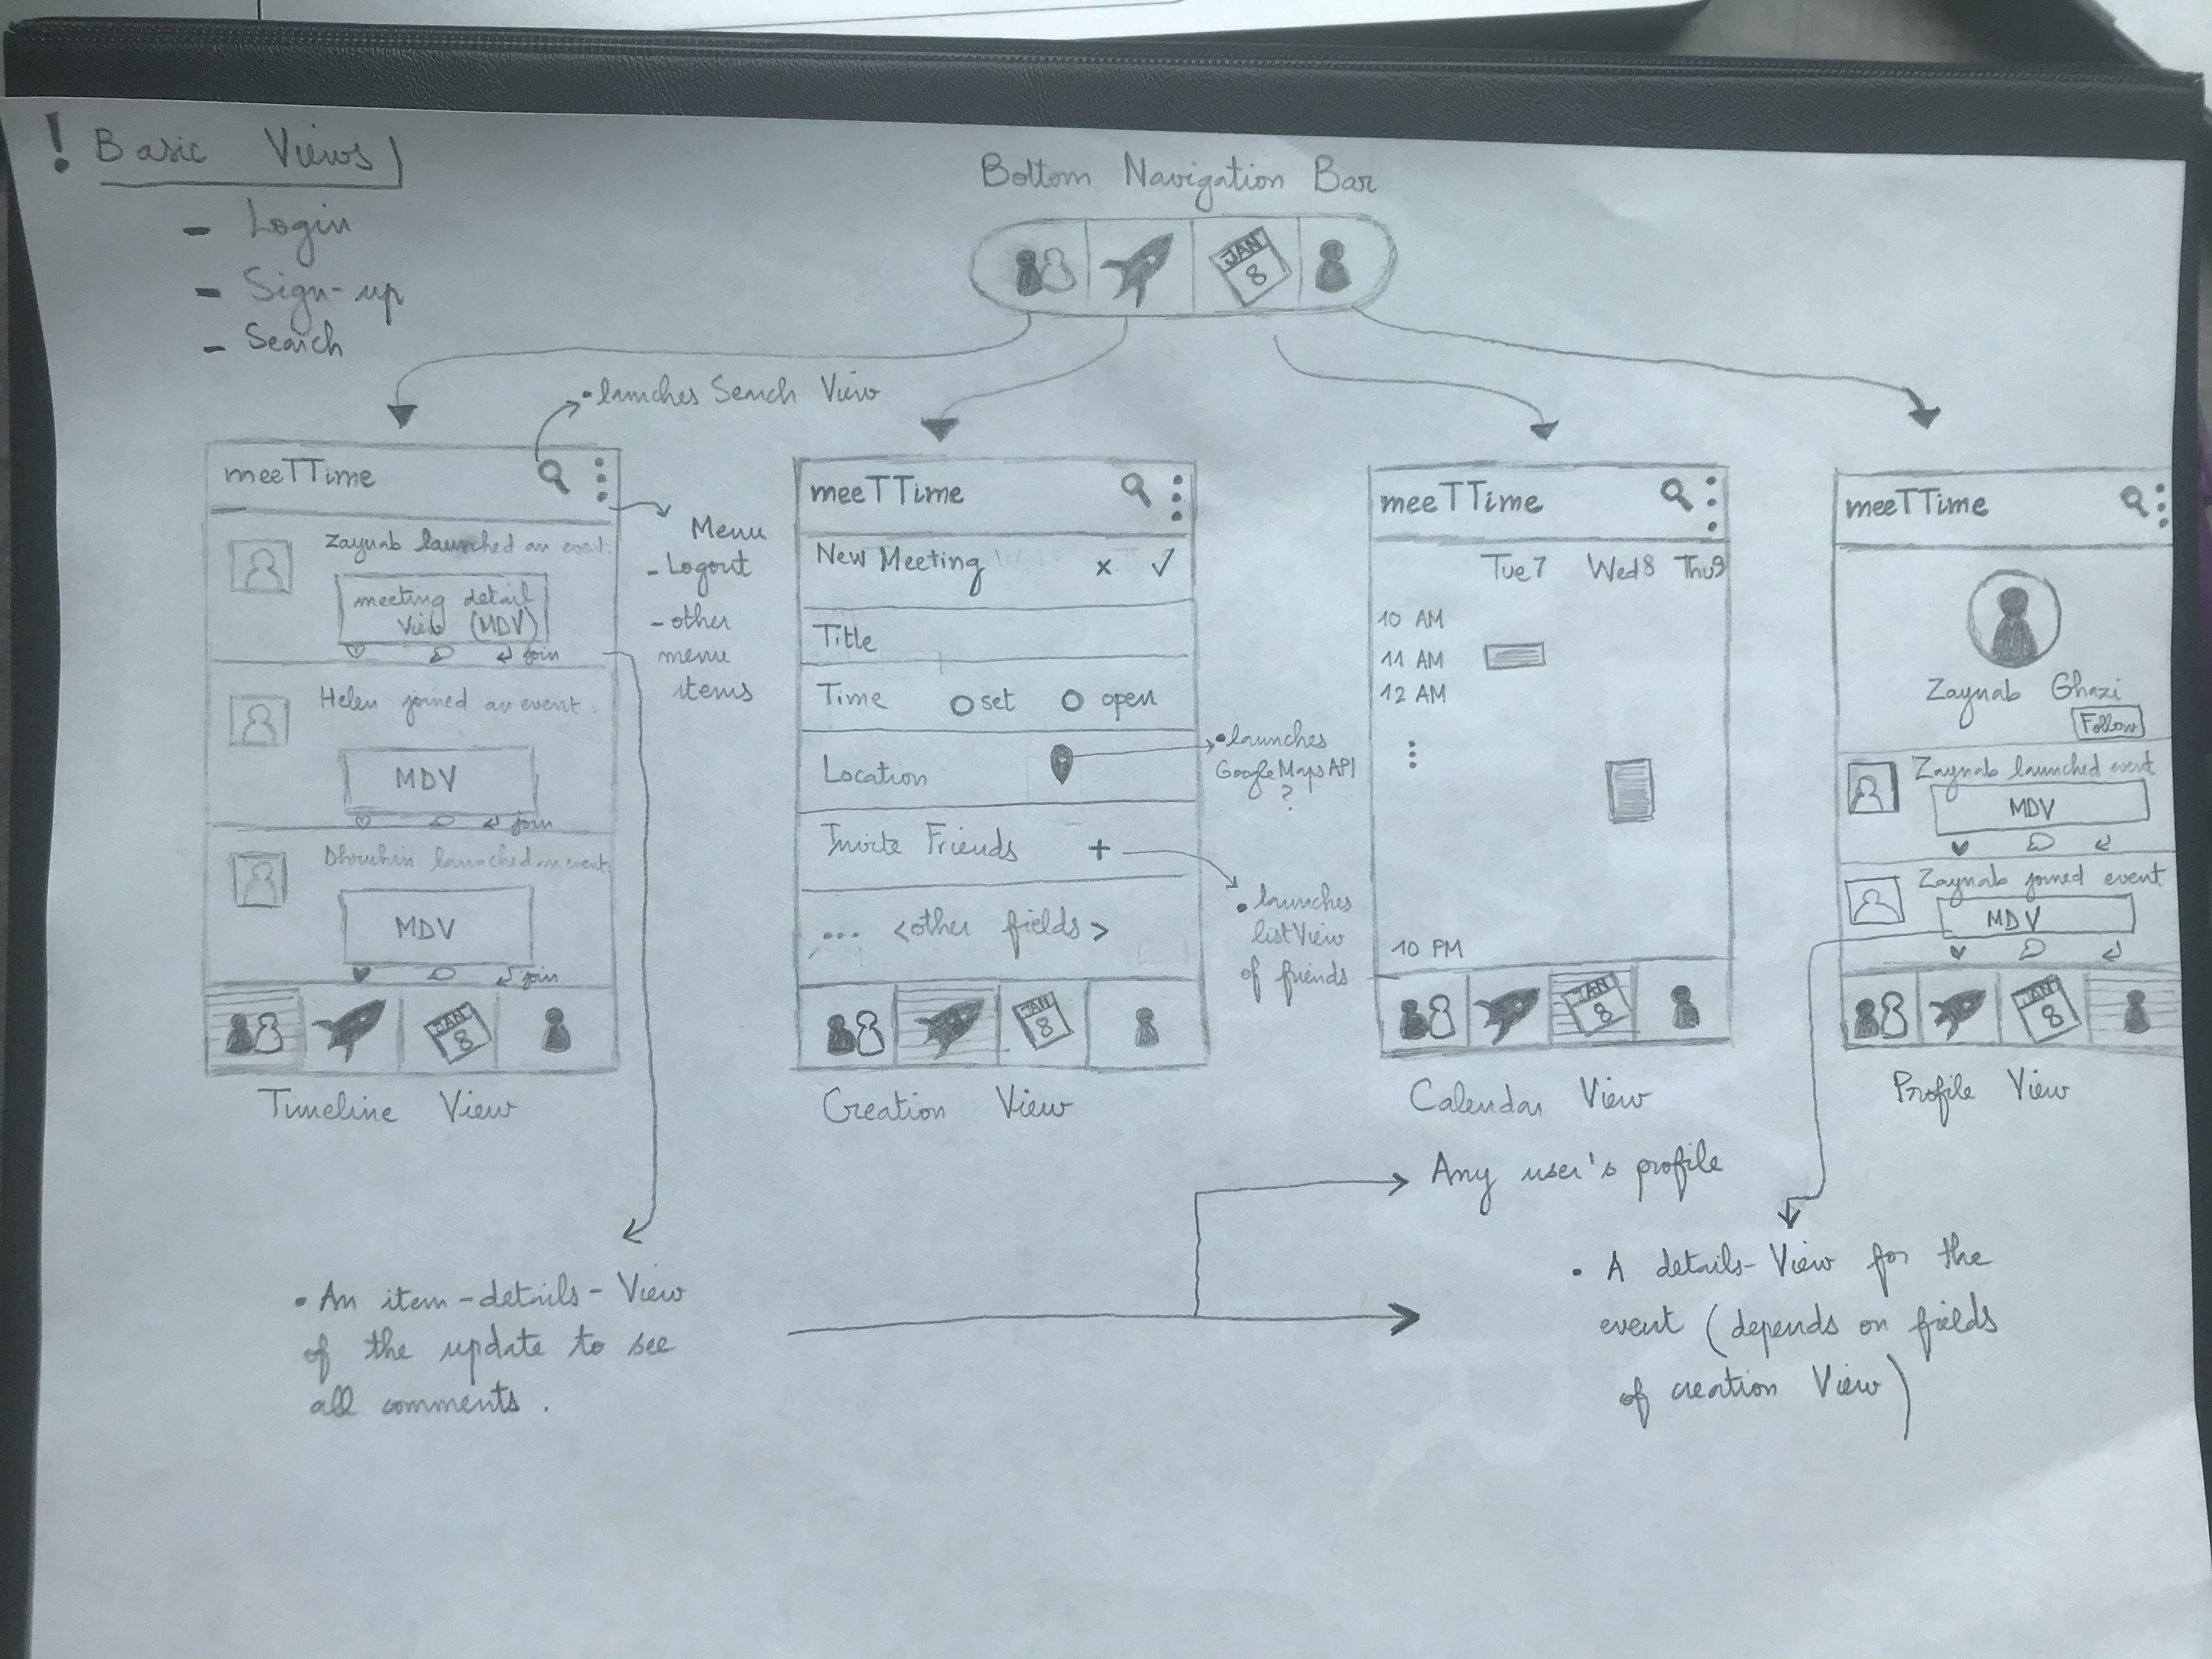 ! Basic Views
- Login
- Sign-up
- Search
Bottom Navigation Bar
JAN
8
• launches Search View
meeTTime
Zaynab launched an event.
meeting detail
View (MDV)
join
Helen joined an event.
MDV
join
Dhruhin launched an event
MDV
join
JAN
8
Timeline View
Menu
- Logout
- other
menu
items
meeTTime
New Meeting x ✓
Title
Time set open
Location
Invite Friends +
... <other fields>
JAN
8
Creation View
• launches
Google Maps API
?
• launches
listView
of friends
meeTTime
Tue 7 Wed 8 Thu 9
10 AM
11 AM
12 AM
10 PM
JAN
8
Calendar View
meeTTime
Zaynab Ghazi
Follow
Zaynab launched event
MDV
Zaynab joined event
MDV
JAN
8
Profile View
• An item-details-View
of the update to see
all comments.
Any user's profile
• A details-View for the
event (depends on fields
of creation View)